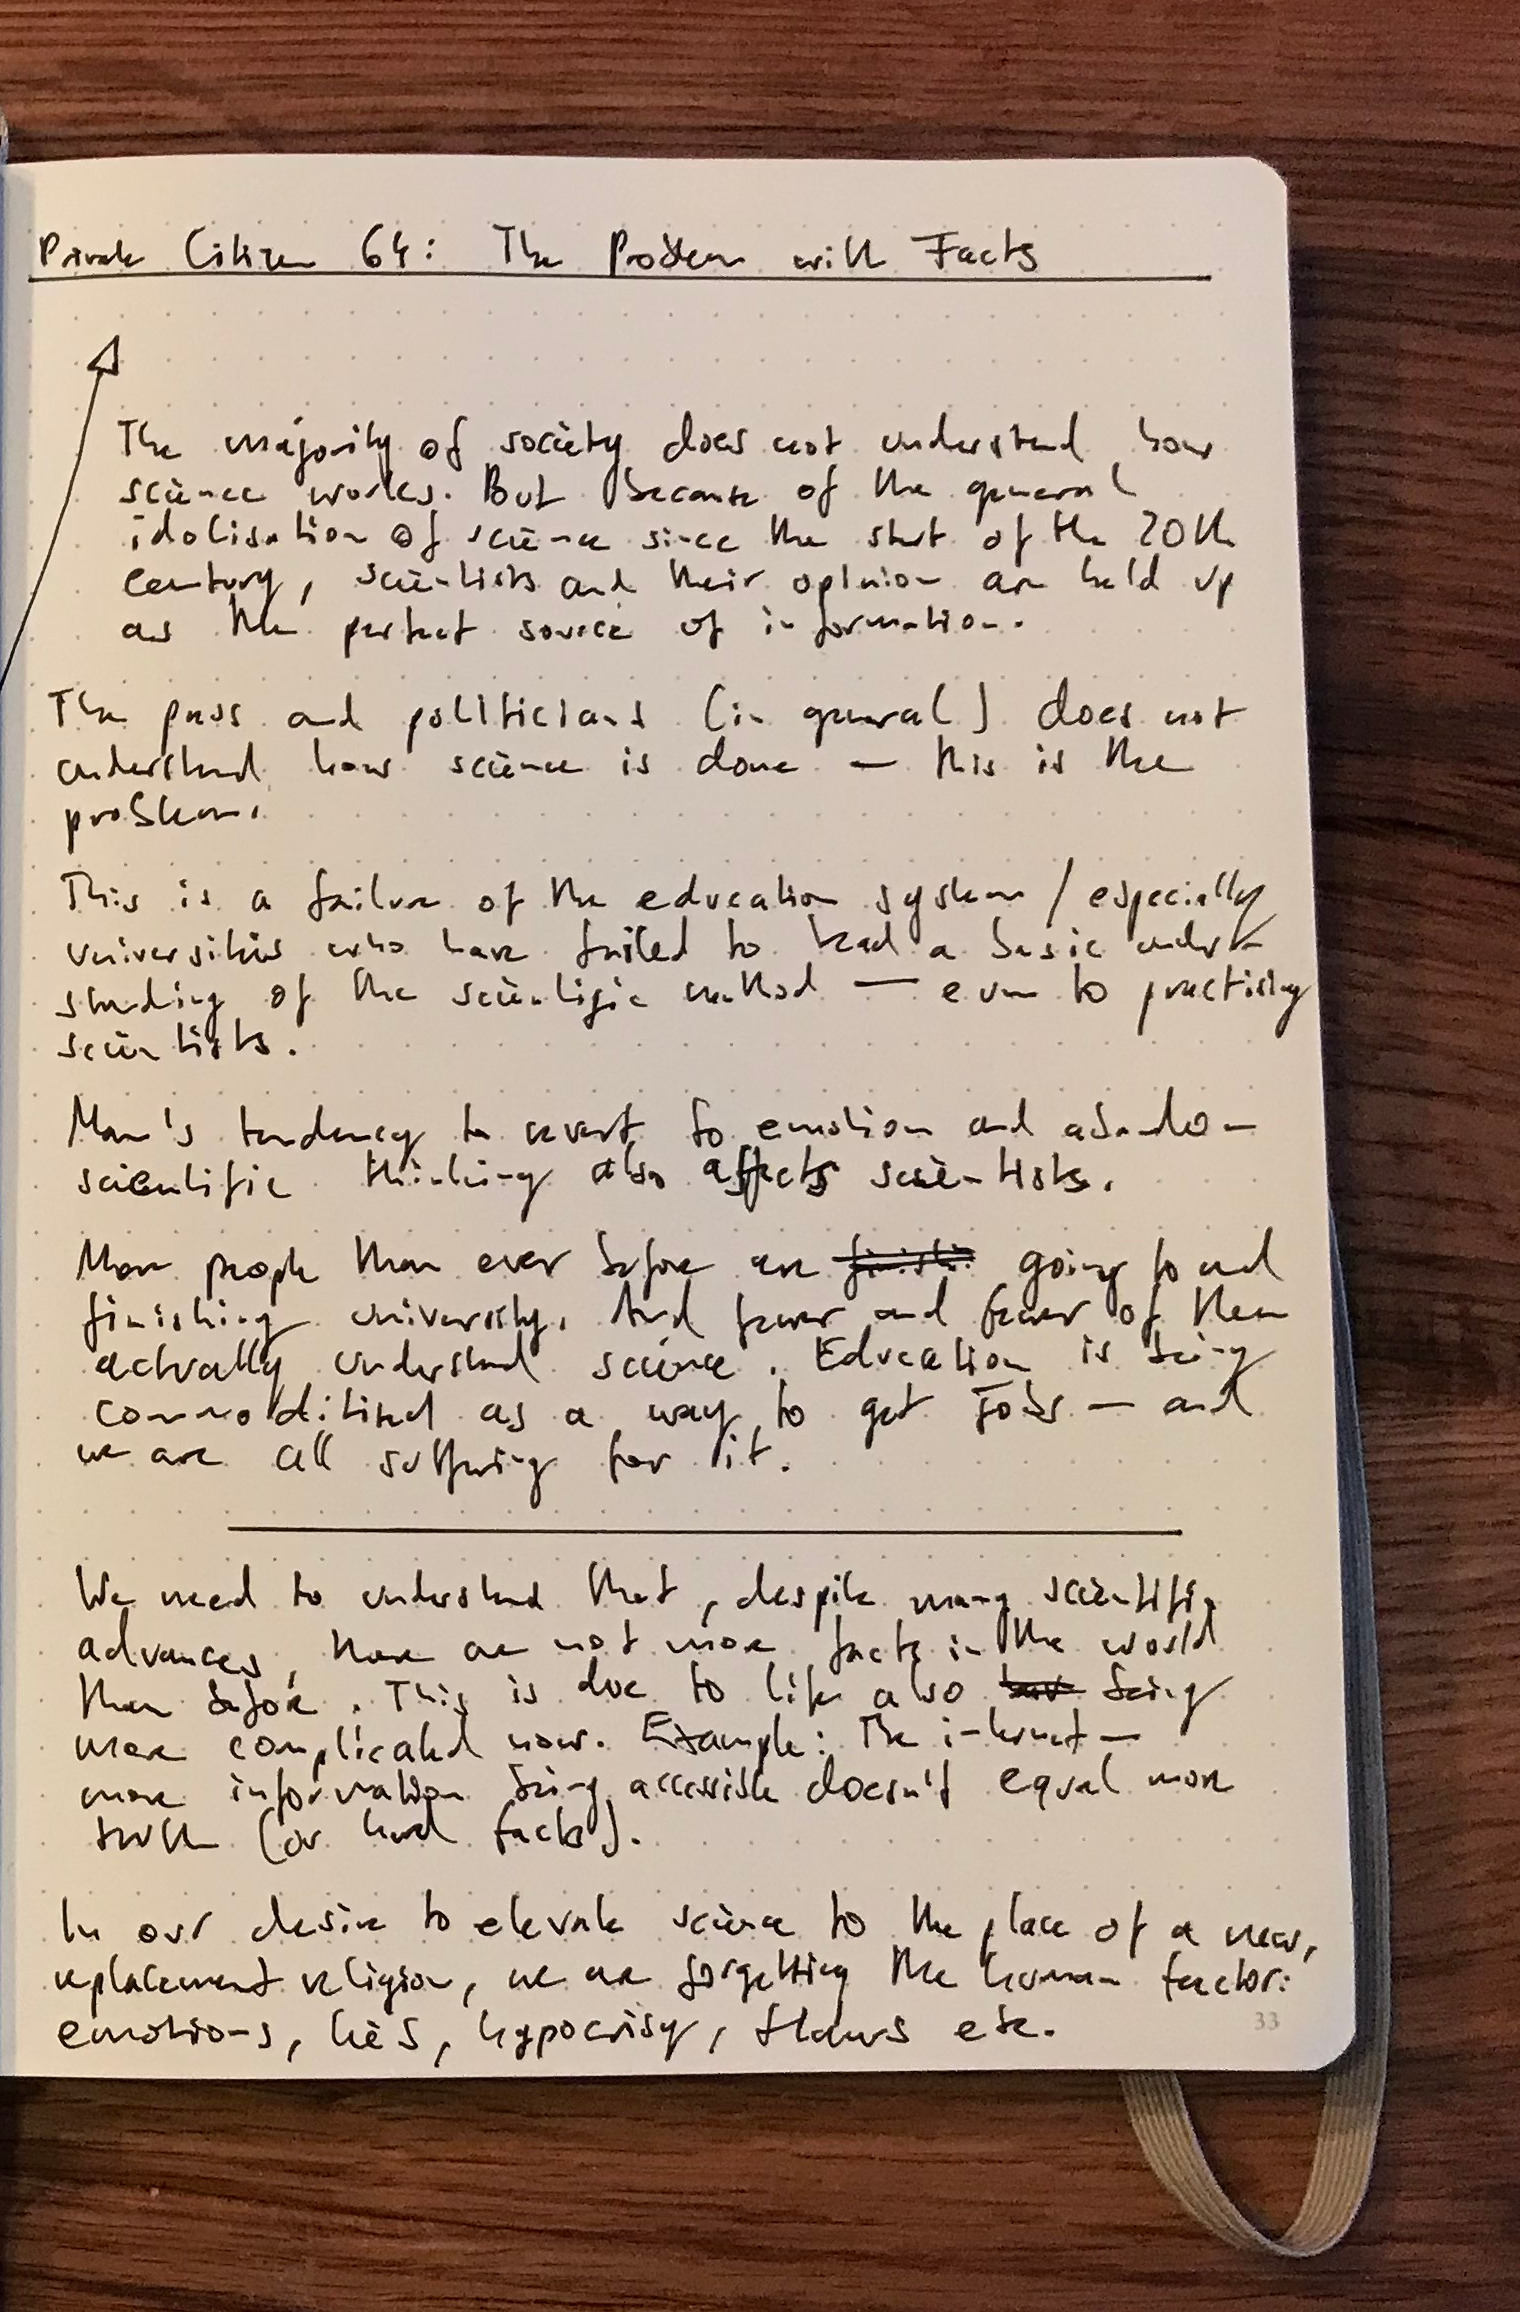 Private Citizen 64: The Problem with Facts
The majority of society does not understand how
science works. But because of the general
idolisation of science since the start of the 20th
century, scientists and their opinion are held up
as the perfect source of information.
The press and politicians (in general) does not
understand how science is done — this is the
problem.
This is a failure of the education system / especially
universities who have failed to teach a basic under-
standing of the scientific method — even to practising
scientists.
Man's tendency to revert to emotion and abandon
scientific thinking also affects scientists.
More people than ever before are finishi going to and
finishing university. And fewer and fewer of them
actually understand science. Education is being
commoditised as a way to get jobs — and
we are all suffering for it.
We need to understand that, despite many scientific
advances, there are not more facts in the world
than before. This is due to life also being
more complicated now. Example: The internet —
more information being accessible doesn't equal more
truth (or hard facts).
In our desire to elevate science to the place of a new,
replacement religion, we are forgetting the human factor:
emotions, lies, hypocrisy, flaws etc.
33